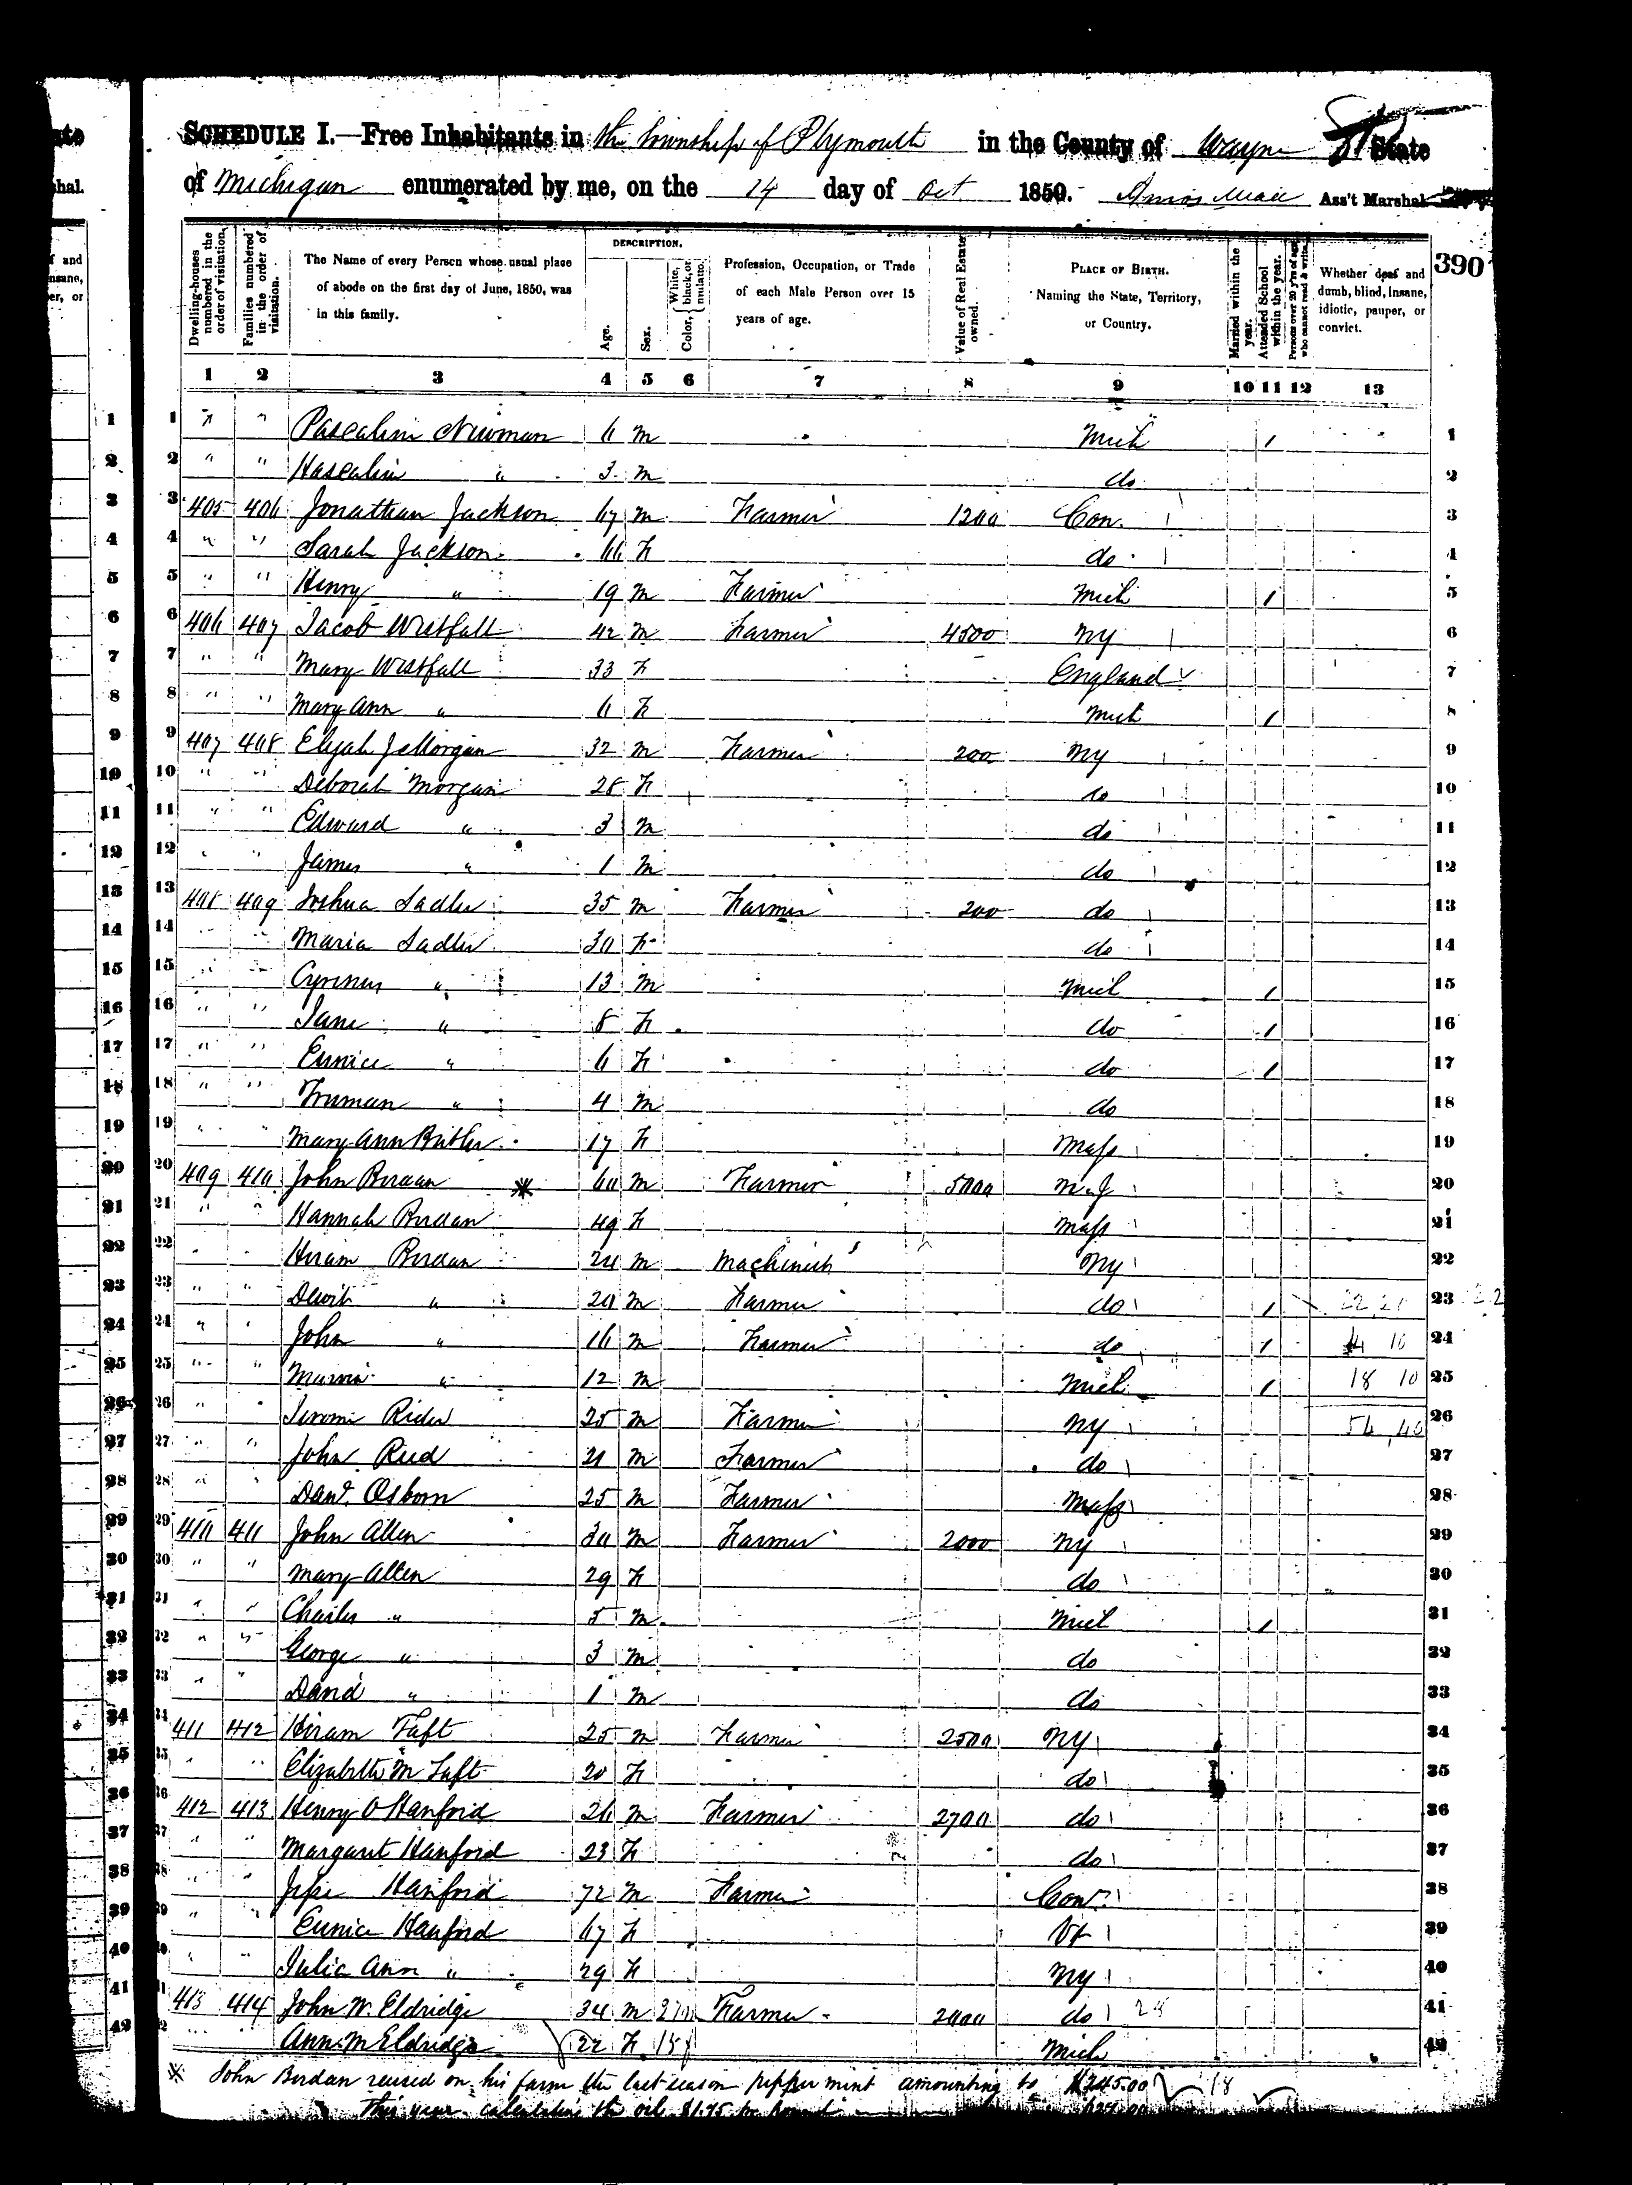 SCHEDULE I.—Free Inhabitants in the Township of Plymouth in the County of Wayne State
of Michigan enumerated by me, on the 14 day of Oct 1850. Amos Mead Ass't Marshal
390
Dwelling-houses numbered in the order of visitation.
Families numbered in the order of visitation.
The Name of every Person whose usual place of abode on the first day of June, 1850, was in this family.
DESCRIPTION.
Age.
Sex.
Color, White, black, or mulatto.
Profession, Occupation, or Trade of each Male Person over 15 years of age.
Value of Real Estate owned.
PLACE OF BIRTH. Naming the State, Territory, or Country.
Married within the year.
Attended School within the year.
Persons over 20 y'rs of age who cannot read & write.
Whether deaf and dumb, blind, insane, idiotic, pauper, or convict.
1 2 3 4 5 6 7 8 9 10 11 12 13
1 " " Newman 6 m Mich 1 1
2 " " " 3 m do 2
3 405 406 Jonathan Jackson 67 m Farmer 1200 Con. 3
4 " " Sarah Jackson 66 F do 4
5 " " Henry " 19 m Farmer Mich 1 5
6 406 407 Jacob Westfall 42 m Farmer 4500 NY 6
7 " " Mary Westfall 33 F England 7
8 " " Mary Ann " 6 F Mich 1 8
9 407 408 Elijah J Morgan 32 m Farmer 200 NY 9
10 " " Deborah Morgan 28 F do 10
11 " " Edward " 3 m do 11
12 " " James " 1 m do 12
13 408 409 Joshua Sadler 35 m Farmer 200 do 13
14 " " Maria Sadler 30 F do 14
15 " " Cyrenus " 13 m Mich 1 15
16 " " Jane " 8 F do 1 16
17 " " Eunice " 6 F do 1 17
18 " " Truman " 4 m do 18
19 " " Mary Ann Butler 17 F Mass 19
20 409 410 John Berdan * 60 m Farmer 5000 N.J 20
21 " " Hannah Berdan 49 F Mass 21
22 " " Hiram Berdan 24 m Machinist NY 22
23 " " Dewit " 20 m Farmer do 1 22 21 23
24 " " John " 16 m Farmer do 1 10 24
25 " " " 12 m Mich 1 18 10 25
26 " " Jerome Rider 25 m Farmer NY 54 26
27 " " John Reed 21 m Farmer do 27
28 " " Danl. Osborn 25 m Farmer Mass 28
29 410 411 John Allen 30 m Farmer 2000 NY 29
30 " " Mary Allen 29 F do 30
31 " " Charles " 5 m Mich 1 31
32 " " George " 3 m do 32
33 " " David " 1 m do 33
34 411 412 Hiram Taft 25 m Farmer 2500 NY 34
35 " " Elizabeth M Taft 20 F do 35
36 412 413 Henry O Hanford 26 m Farmer 2700 do 36
37 " " Margaret Hanford 23 F do 37
38 " " Jesse Hanford 72 m Farmer Con. 38
39 " " Eunice Hanford 67 F Vt 39
40 " " Julia Ann " 29 F NY 40
41 413 414 John W. Eldridge 34 m 27m Farmer 2000 do 28 41
42 " " Ann M Eldridge 22 F 15f Mich 42
* John Berdan reised on his farm the last season pepper mint amounting to $245.00 18
This year calculating the oil $1.75 per pound